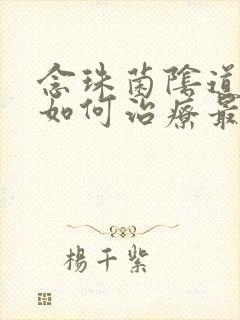 念珠菌陰道
如何治療最
楊千紫